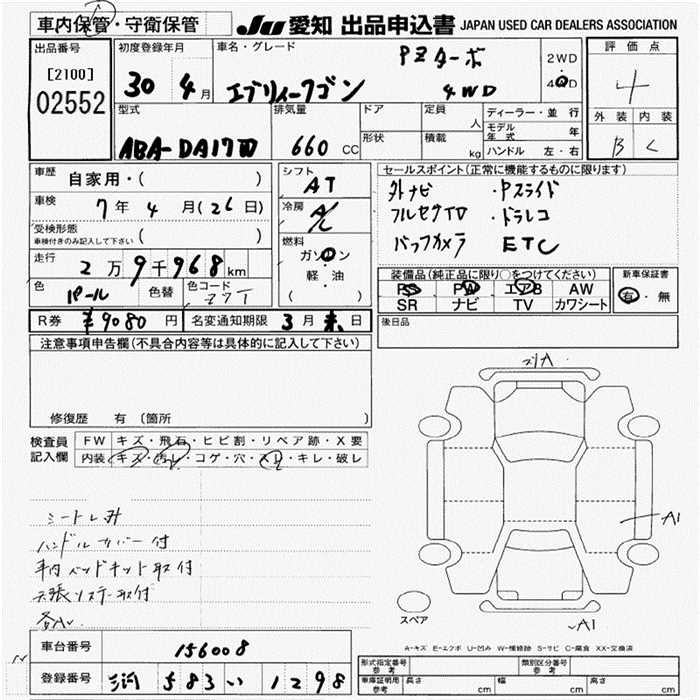 車内保管・守衛保管
JU 愛知 出品申込書 JAPAN USED CAR DEALERS ASSOCIATION
出品番号
[2100]
02552
初度登録年月
30 4月
車名・グレード
PZターボ
エブリィワゴン 4WD
2WD
4WD
評価点
外装 内装
B C
型式
ABA-DA17W
排気量
660 CC
ドア
形状
定員 人
積載 kg
ディーラー・並行
モデル年式 年
ハンドル 左・右
車歴 自家用・( )
車検 7年 4月(26日)
受検形態
車検付きのみ記入して下さい ( )
走行 2万9千968km
色 パール 色替 色コード
シフト
AT
冷房
A/C
燃料
ガソリン
軽・油
( )
セールスポイント(正常に機能するものに限ります)
外ナビ ・Pスライド
フルセグTV ・ドラレコ
バックカメラ ETC
装備品(純正品に限り○をつけてください)
PS PW エアB AW
SR ナビ TV カワシート
新車保証書
有・無
R券 ¥9080円 名変通知期限 3月末日
後日品
注意事項申告欄(不具合内容等は具体的に記入して下さい)
修復歴 有 〔箇所
検査員記入欄
FW キズ・飛石・ヒビ割・リペア跡・X要
内装 キズ・汚レ・コゲ・穴・スレ・キレ・破レ
シートレザー
ハンドルカバー付
車内ベッドキット取付
天張リステー取付
A1
A1
スペア
A-キズ E-エクボ U-凹み W-補修跡 S-サビ C-腐食 XX-交換済
車台番号 156008
登録番号 583 い 1298
形式指定番号 参考
類別区分番号 参考
車庫証明用 参考 長さ cm 幅 cm 高さ cm